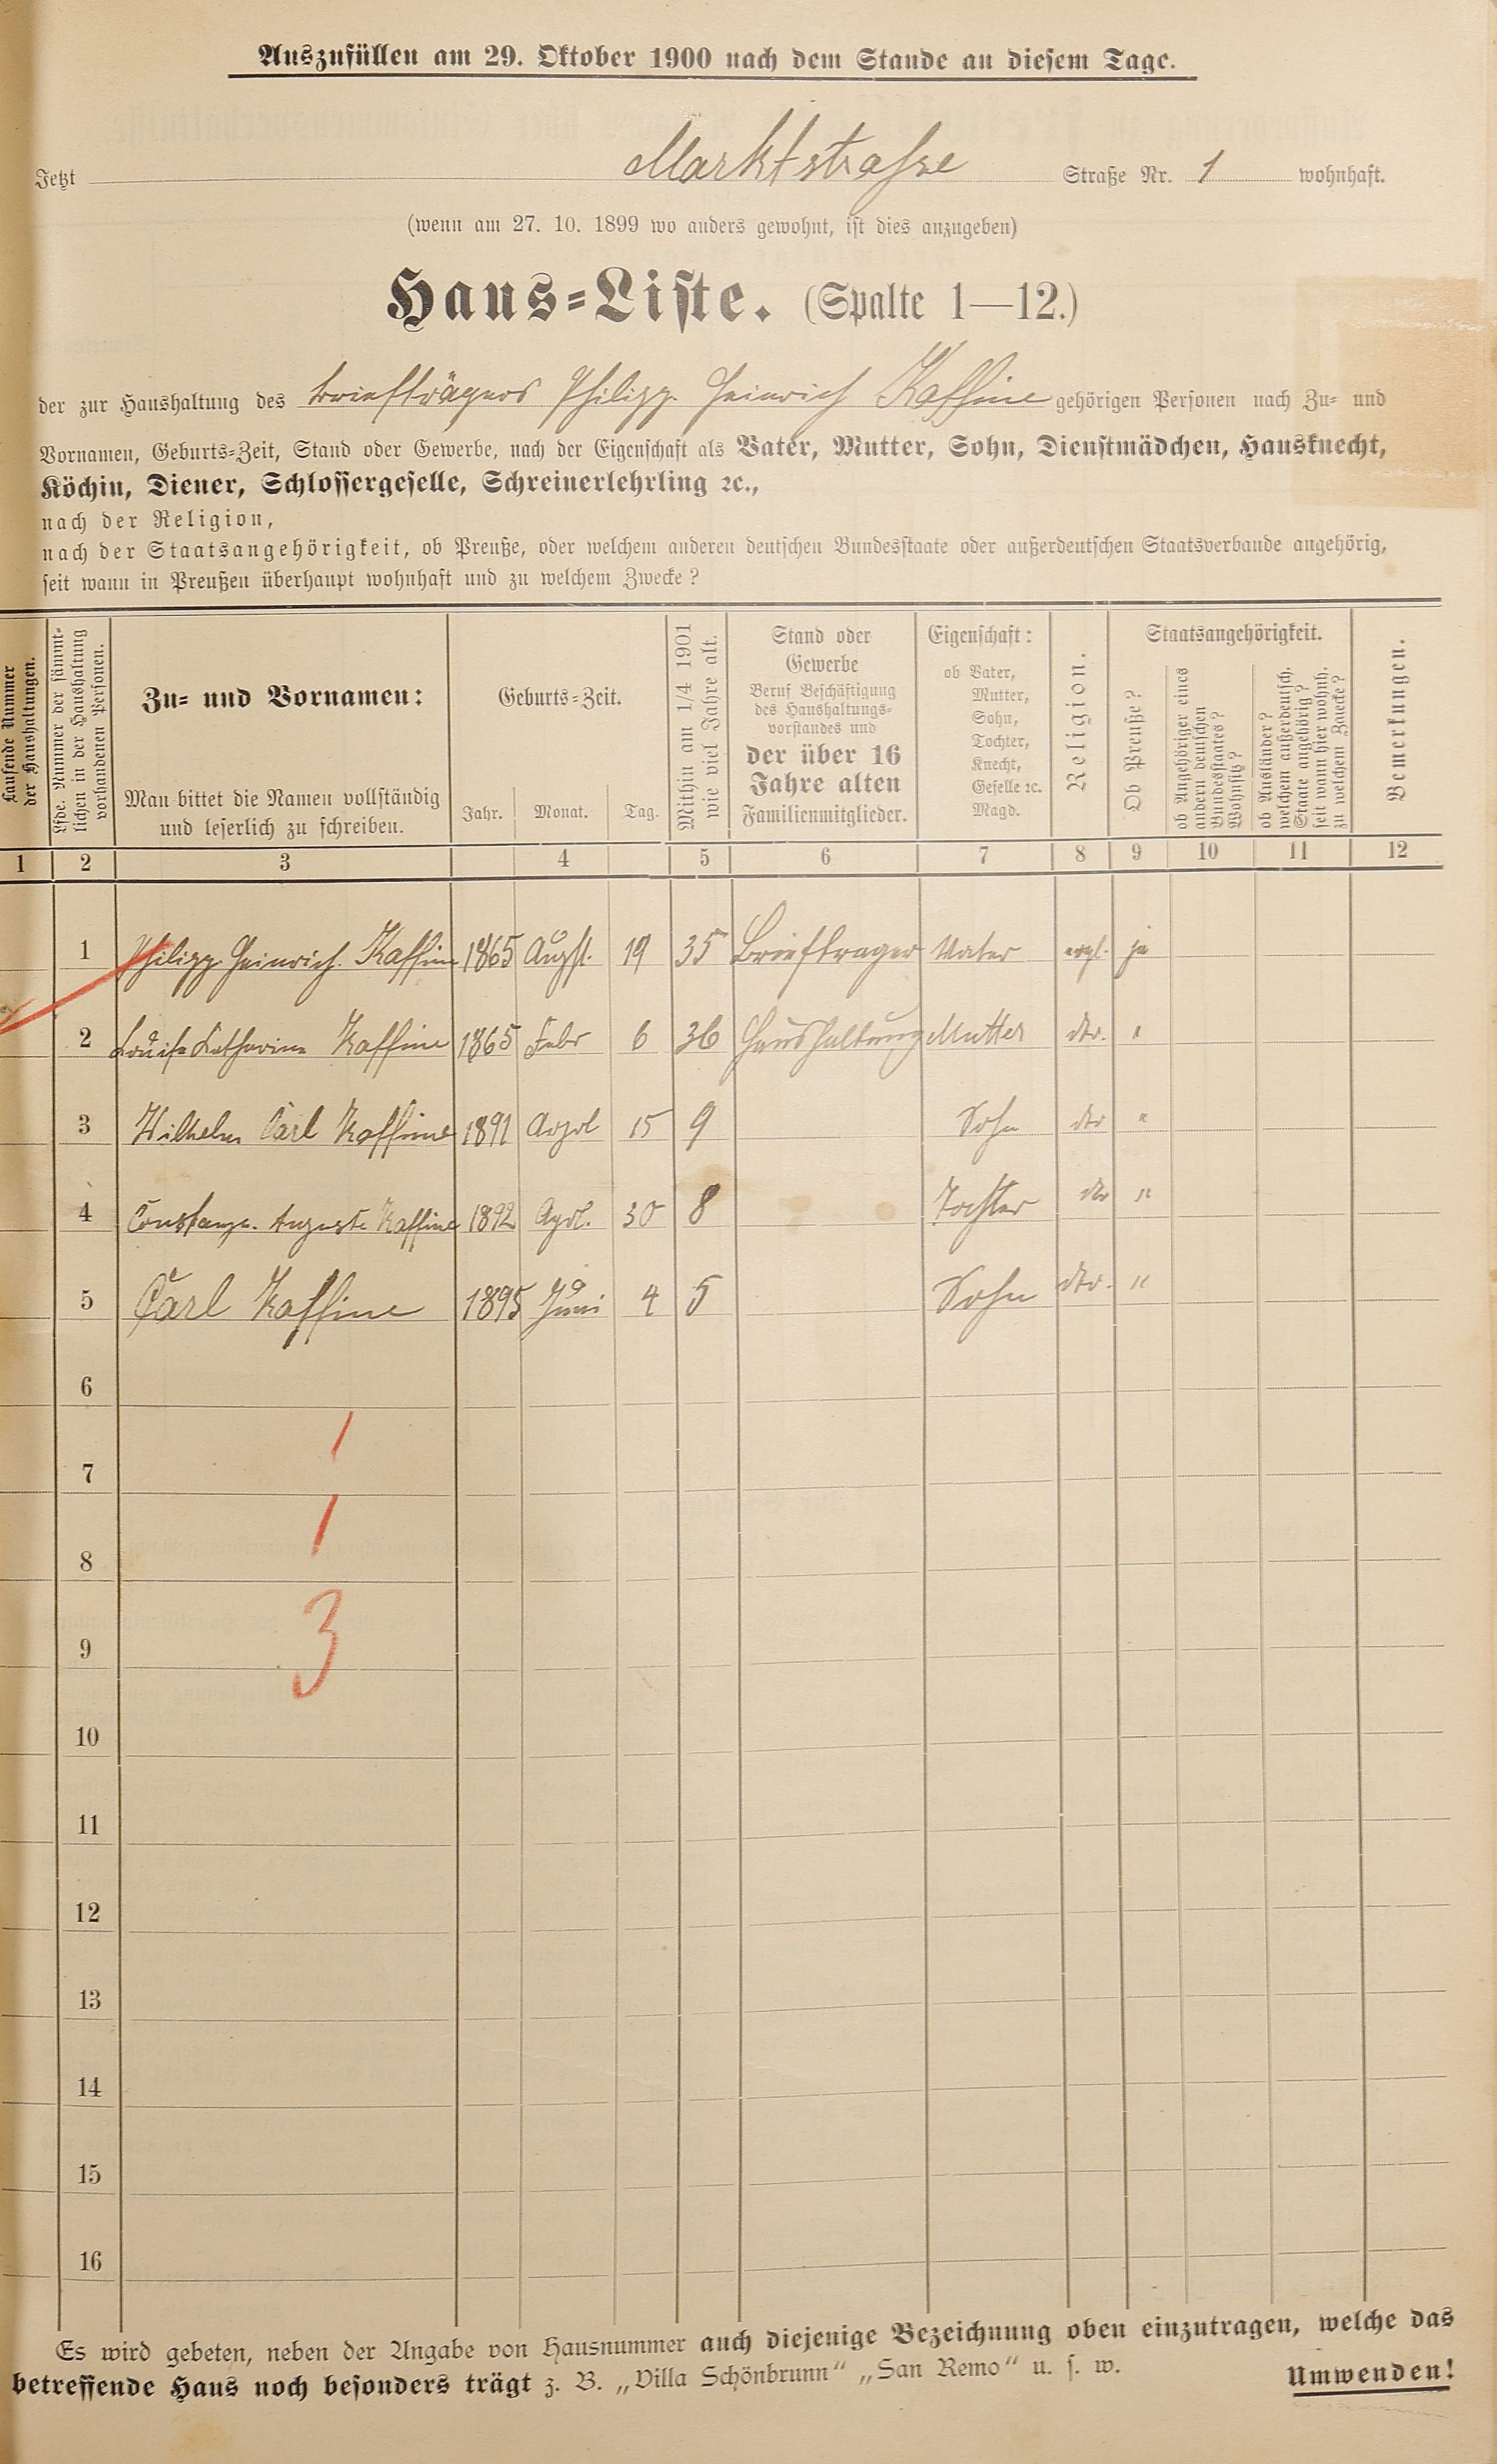 Auszufüllen am 29. Oktober 1900 nach dem Stande an diesem Tage.
Jetzt Marktstrasse Straße Nr. 1 wohnhaft.
(wenn am 27. 10. 1899 wo anders gewohnt, ist dies anzugeben)
Haus-Liste. (Spalte 1—12.)
der zur Haushaltung des Briefträgers Philipp Heinrich Kaffine gehörigen Personen nach Zu- und
Vornamen, Geburts-Zeit, Stand oder Gewerbe, nach der Eigenschaft als Vater, Mutter, Sohn, Dienstmädchen, Hausknecht,
Köchin, Diener, Schlossergeselle, Schreinerlehrling ꝛc.,
nach der Religion,
nach der Staatsangehörigkeit, ob Preuße, oder welchem anderen deutschen Bundesstaate oder außerdeutschen Staatsverbande angehörig,
seit wann in Preußen überhaupt wohnhaft und zu welchem Zwecke?
Laufende Nummer
der Haushaltungen.
Lfde. Nummer der sämmt-
lichen in der Haushaltung
vorhandenen Personen.
Zu- und Vornamen:
Man bittet die Namen vollständig
und leserlich zu schreiben.
Geburts-Zeit.
Jahr. Monat. Tag.
Mithin am 1/4 1901
wie viel Jahre alt.
Stand oder
Gewerbe
Beruf Beschäftigung
des Haushaltungs-
vorstandes und
der über 16
Jahre alten
Familienmitglieder.
Eigenschaft:
ob Vater,
Mutter,
Sohn,
Tochter,
Knecht,
Geselle ꝛc.
Magd.
Religion.
Staatsangehörigkeit.
Ob Preuße?
ob Angehöriger eines
andern deutschen
Bundesstaates?
Wohnsitz?
ob Ausländer?
welchem außerdeutsch.
Staate angehörig?
seit wann hier wohnh.
zu welchem Zwecke?
Bemerkungen.
1 2 3 4 5 6 7 8 9 10 11 12
1 Philipp Heinrich Kaffine 1865 Augst. 19 35 Briefträger Vater evgl. ja
2 Louise Katharine Kaffine 1865 Febr 6 36 Haushaltung Mutter dto. "
3 Wilhelm Carl Kaffine 1891 Aprl 15 9 Sohn dto "
4 Constanze Auguste Kaffine 1892 Aprl. 30 8 Tochter dto "
5 Carl Kaffine 1895 Juni 4 5 Sohn dto. "
6
1
7
1
8
3
9
10
11
12
13
14
15
16
Es wird gebeten, neben der Angabe von Hausnummer auch diejenige Bezeichnung oben einzutragen, welche das
betreffende Haus noch besonders trägt z. B. „Villa Schönbrunn“ „San Remo“ u. s. w.
Umwenden!